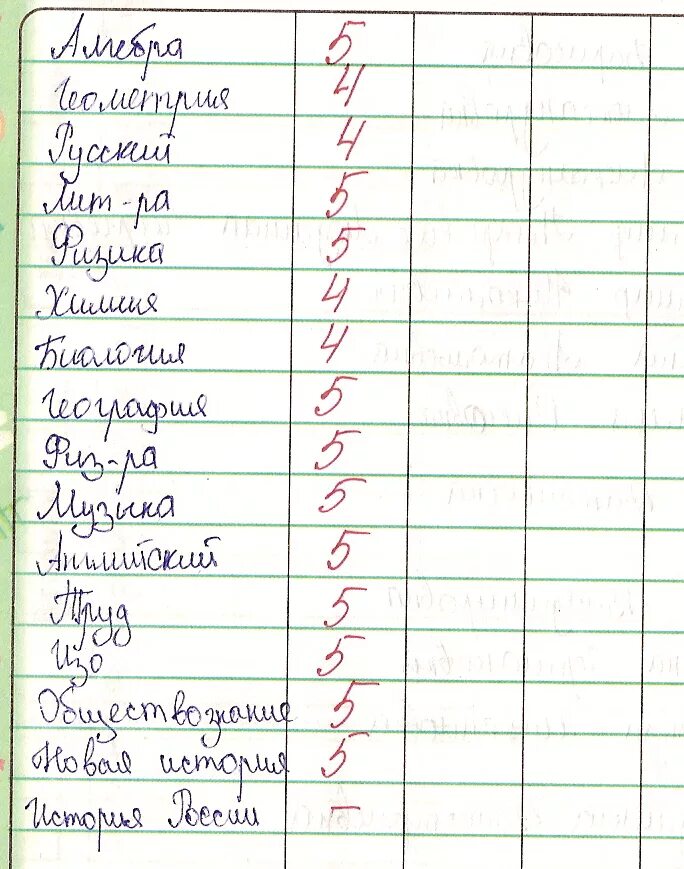 Алгебра 5
Геометрия 4
Русский 4
Лит-ра 5
Физика 5
Химия 4
Биология 4
География 5
Физ-ра 5
Музыка 5
Английский 5
Труд 5
Изо 5
Обществознание 5
Новая история 5
История России